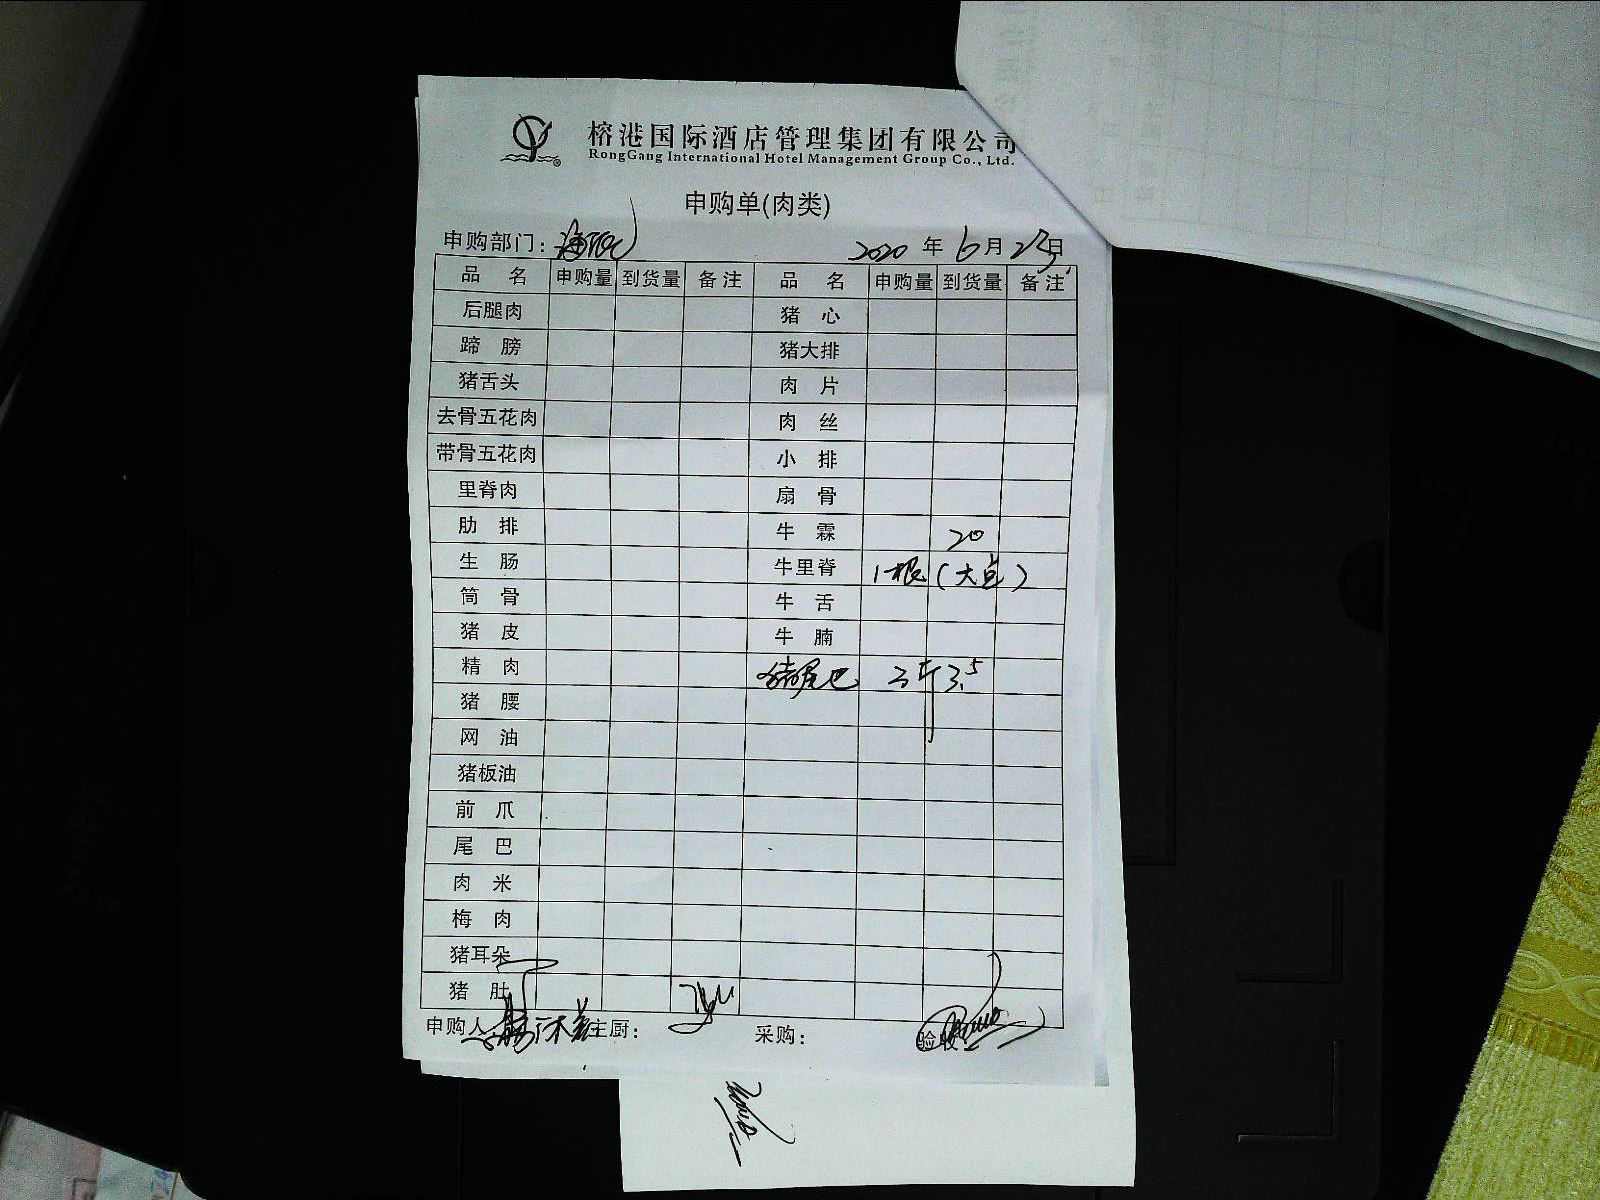 榕港国际酒店管理集团有限公司
RongGang International Hotel Management Group Co., Ltd.
申购单(肉类)
申购部门: 2020 年 6 月 日
品 名 申购量 到货量 备注 品 名 申购量 到货量 备注
后腿肉 猪 心
蹄 膀 猪大排
猪舌头 肉 片
去骨五花肉 肉 丝
带骨五花肉 小 排
里脊肉 扇 骨
肋 排 牛 霖 20
生 肠 牛里脊 1根(大点)
筒 骨 牛 舌
猪 皮 牛 腩
精 肉 猪尾巴 3斤 3.5
猪 腰
网 油
猪板油
前 爪
尾 巴
肉 米
梅 肉
猪耳朵
猪 肚
申购人: 主厨: 采购: 验收: